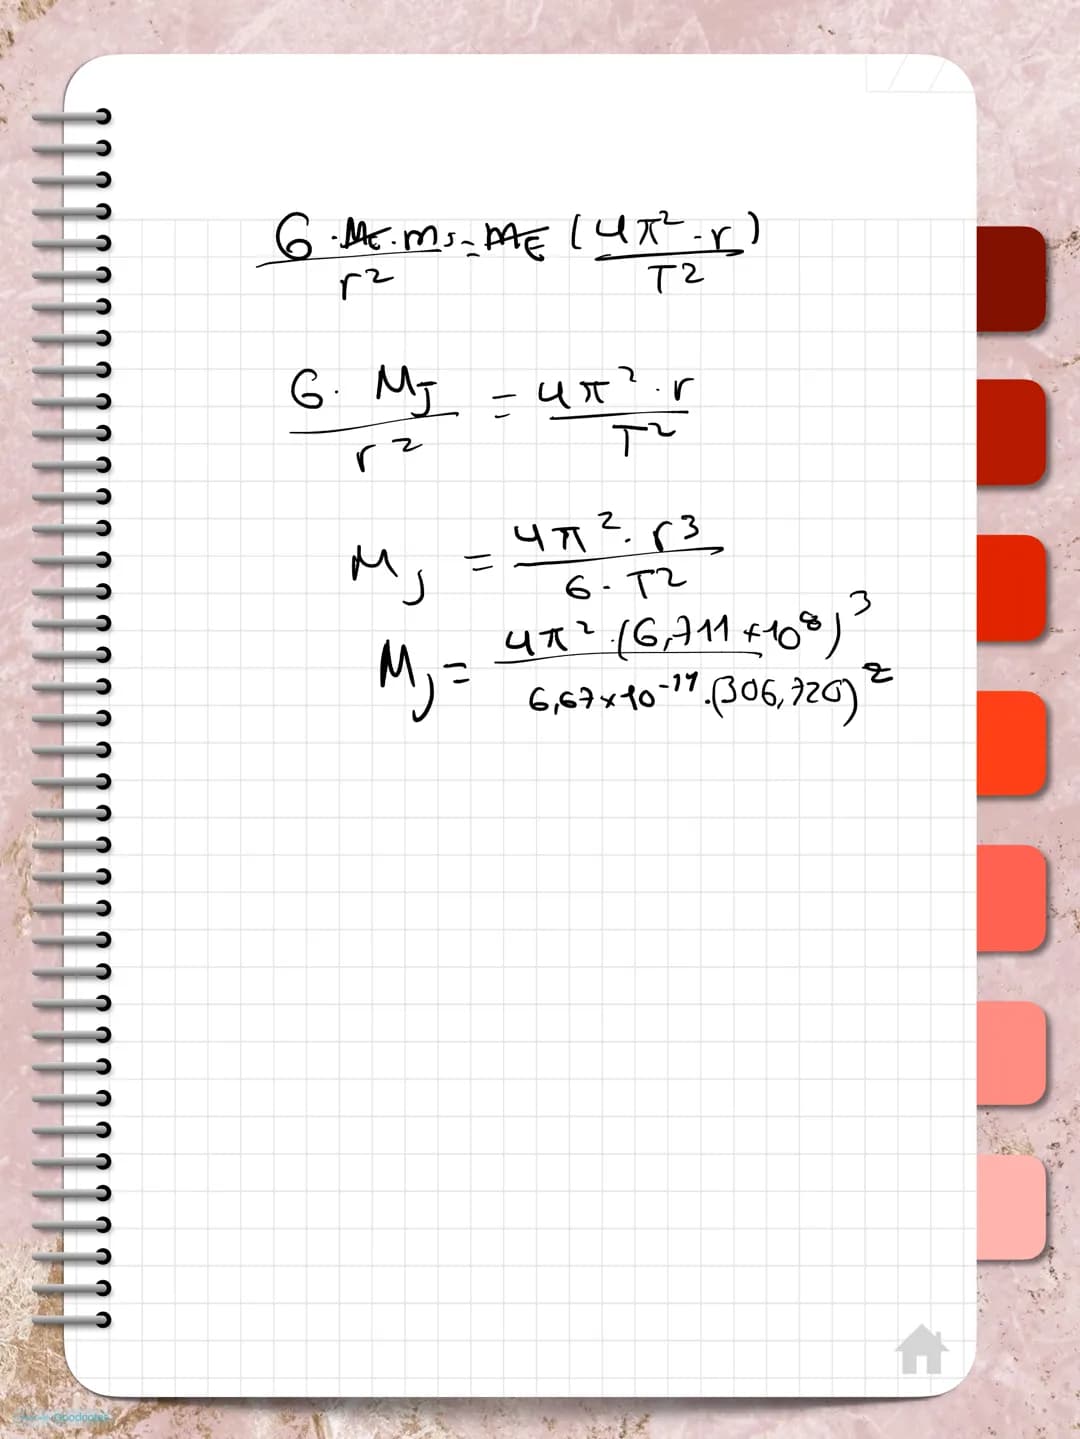 G · M̶E̶ · mJ / r² = m̶E̶ (4π² · r / T²)
G · MJ / r² = 4π² · r / T²
MJ = 4π² · r³ / G · T²
MJ = 4π² · (6,711 × 10⁸)³ / 6,67 × 10⁻¹¹ · (306,720)²